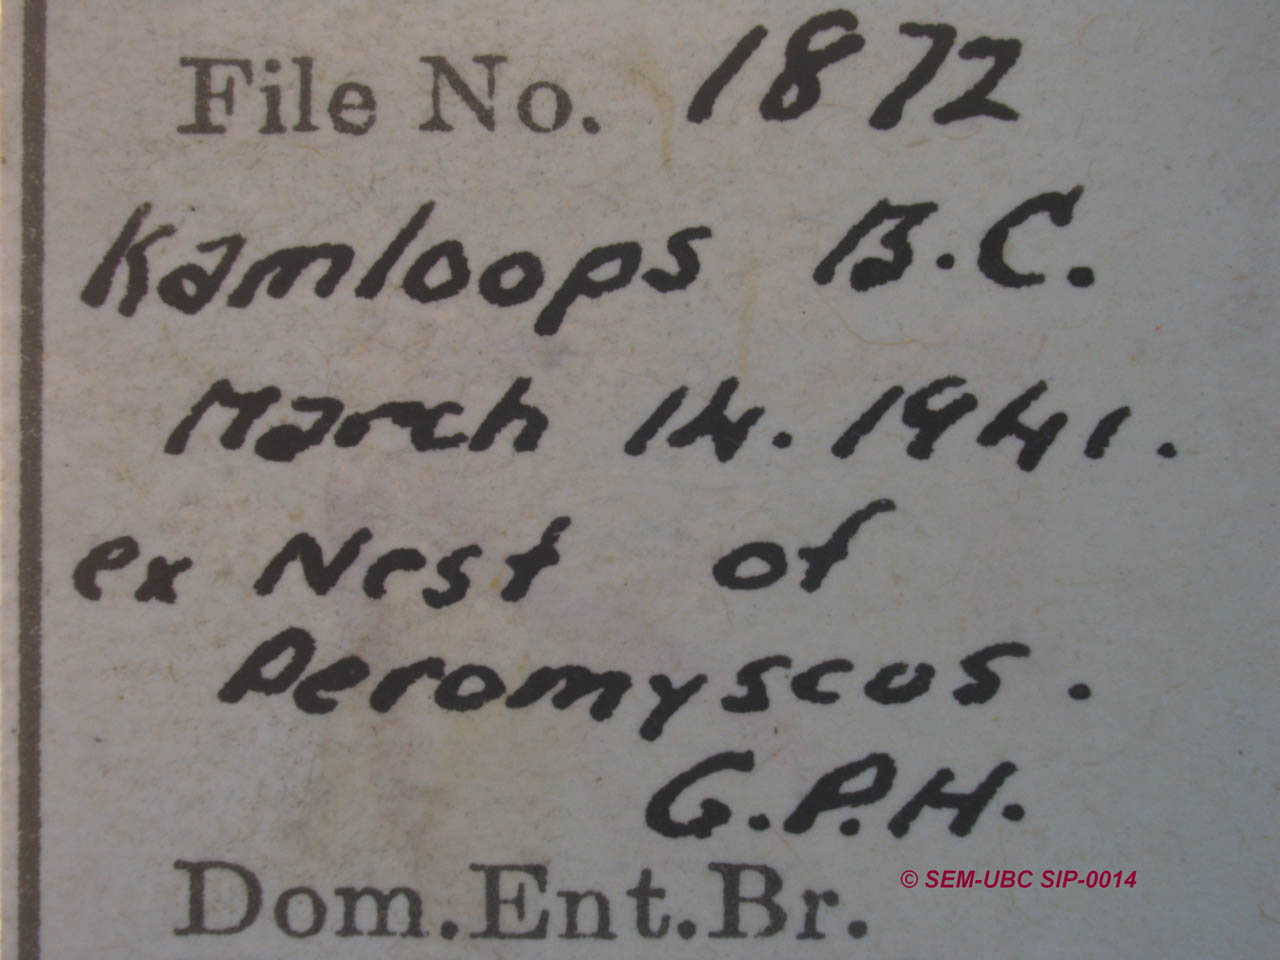 File No. 1872
Kamloops B.C.
March 14. 1941.
ex Nest of
Peromyscus.
G.P.H.
© SEM-UBC SIP-0014
Dom.Ent.Br.